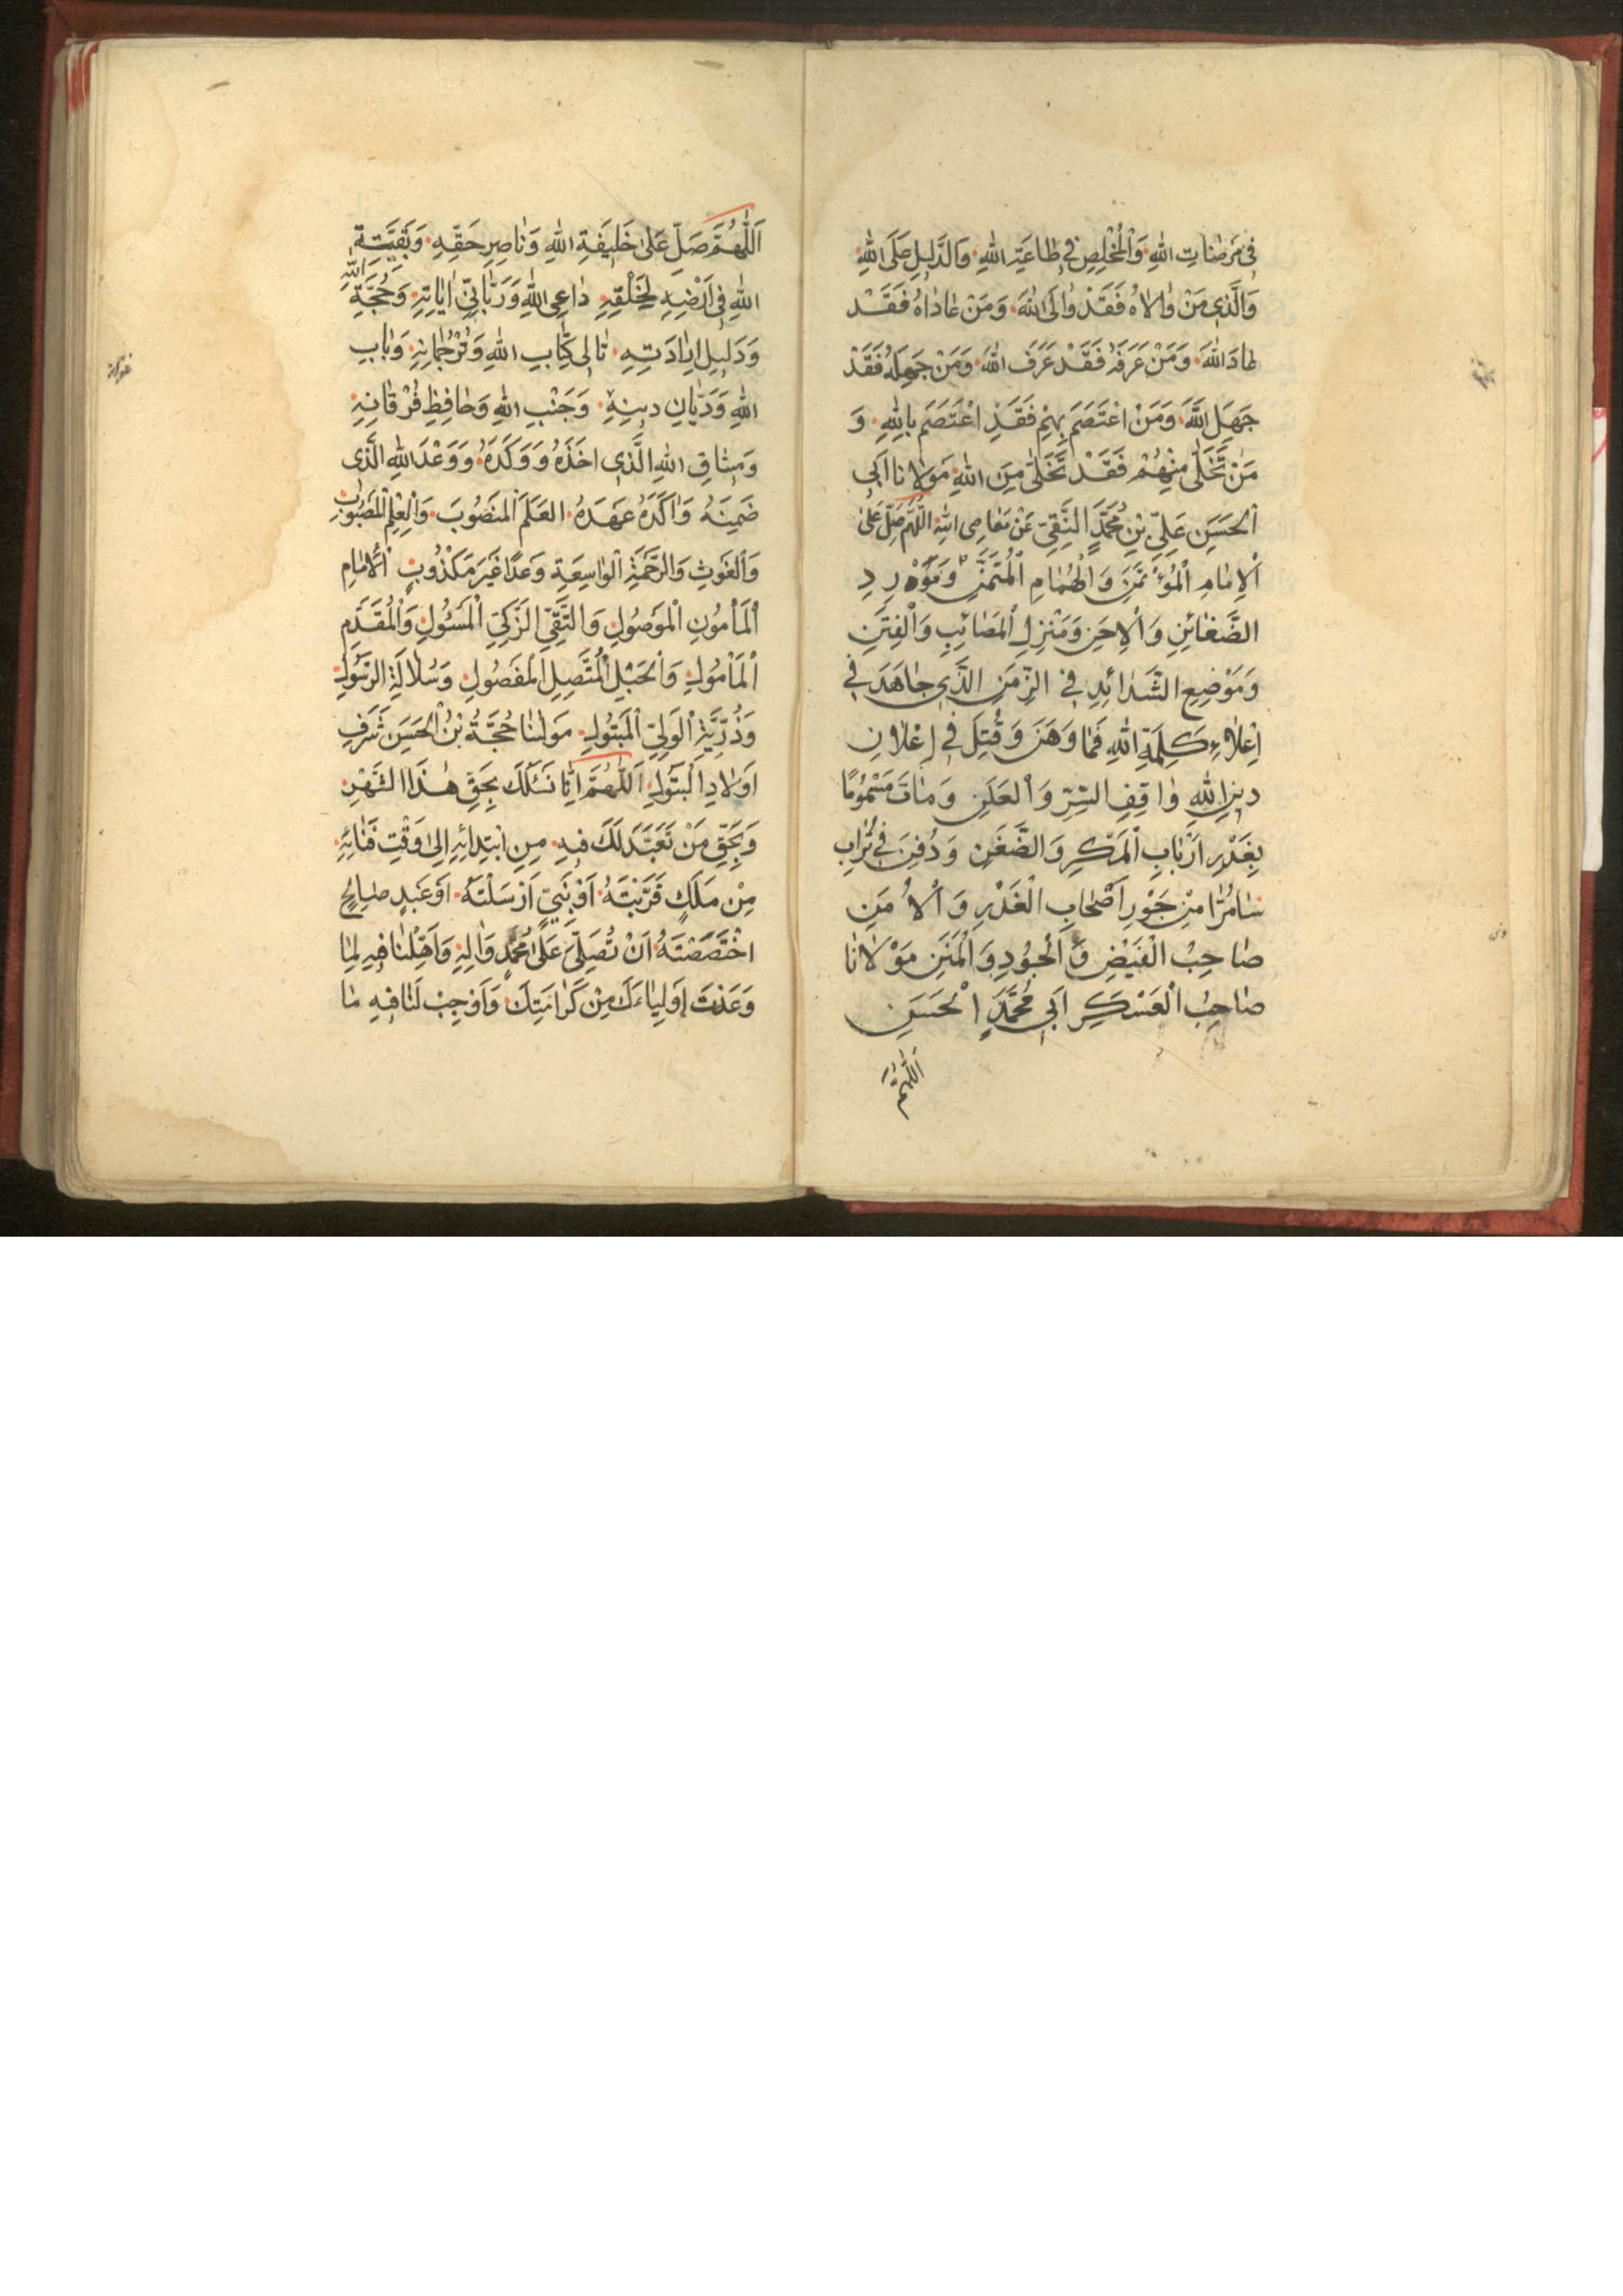 فِى مَرَضَاتِ اللهِ وَالْمُخْلِصِ فِى طَاعَةِ اللهِ وَالدَّلِيلِ عَلَى اللهِ
وَالَّذِى مَنْ وَالَاهُ فَقَدْ وَالَى اللهَ وَمَنْ عَادَاهُ فَقَدْ
عَادَ اللهَ وَمَنْ عَرَفَهُ فَقَدْ عَرَفَ اللهَ وَمَنْ جَهِلَهُ فَقَدْ
جَهِلَ اللهَ وَمَنْ اعْتَصَمَ بِهِمْ فَقَدِ اعْتَصَمَ بِاللهِ وَ
مَنْ تَخَلَّى مِنْهُمْ فَقَدْ تَخَلَّى مِنَ اللهِ مَوْلَانَا اَبِى
الْحَسَنِ عَلِيِّ بْنِ مُحَمَّدٍ النَّقِيِّ عَنْ مَعَاصِى اللهِ اَللّٰهُمَّ صَلِّ عَلَى
الْاِمَامِ الْمُؤْتَمَنِ وَالْهُمَامِ الْمُتَمَنِّ وَمَوْرِدِ
الضَّغَائِنِ وَالْاِحَنِ وَمَنْزِلِ الْمَصَائِبِ وَالْفِتَنِ
وَمَوْضِعِ الشَّدَائِدِ فِى الزَّمَنِ الَّذِى جَاهَدَ فِى
اِعْلَاءِ كَلِمَةِ اللهِ فَمَا وَهَنَ وَقُتِلَ فِى اِعْلَانِ
دِينِ اللهِ وَاقِفِ السِّرِّ وَالْعَلَنِ وَمَاتَ مَسْمُومًا
بِغَدْرِ اَرْبَابِ الْمَكْرِ وَالضَّغَنِ وَدُفِنَ فِى تُرَابِ
سَامُرَّا مِنْ جَوْرِ اَصْحَابِ الْغَدْرِ وَالْاُمَنِ
صَاحِبُ الْفَيْضِ وَالْجُودِ وَالْمَنَنِ مَوْلَانَا
صَاحِبُ الْعَسْكَرِ اَبِى مُحَمَّدٍ الْحَسَنِ
اَللّٰهُمَّ
اَللّٰهُمَّ صَلِّ عَلَى خَلِيفَةِ اللهِ وَنَاصِرِ حَقِّهِ وَبَقِيَّةِ
اللهِ فِى اَرْضِهِ لِخَلْقِهِ دَاعِى اللهِ وَرَبَّانِيِّ اٰيَاتِهِ وَحُجَّةِ اللهِ
وَدَلِيلِ اِرَادَتِهِ تَالِى كِتَابِ اللهِ وَتُرْجُمَانِهِ وَبَابِ
اللهِ وَدَيَّانِ دِينِهِ وَجَنْبِ اللهِ وَحَافِظِ فُرْقَانِهِ
وَمِيثَاقِ اللهِ الَّذِى اَخَذَهُ وَوَكَّدَهُ وَوَعْدَ اللهِ الَّذِى
ضَمِنَهُ وَاَكَّدَهُ عَهَدَهُ الْعَلَمَ الْمَنْصُوبَ وَالْعِلْمِ الْمَصْبُوبِ
وَالْغَوْثِ وَالرَّحْمَةِ الْوَاسِعَةِ وَعْدًا غَيْرَ مَكْذُوبٍ الْاِمَامِ
الْمَأْمُونِ الْمَوْصُولِ وَالتَّقِيِّ الزَّكِيِّ الْمَسْئُولِ وَالْمُقَدَّمِ
الْمَأْمُولِ وَالْحَبْلِ الْمُتَّصِلِ الْمَفْصُولِ وَسُلَالَةِ الرَّسُولِ
وَذُرِّيَّةِ الْوَلِيِّ الْمَبْتُولِ مَوْلٰنَا حُجَّةُ بْنُ الْحَسَنِ شَرَفِ
اَوْلَادِ الْبَتُولِ اَللّٰهُمَّ اِنَّا نَسْئَلُكَ بِحَقِّ هٰذَا الشَّهْرِ
وَبِحَقِّ مَنْ تَعَبَّدَ لَكَ فِيهِ مِنِ ابْتِدَائِهِ اِلَى وَقْتِ فَنَائِهِ
مِنْ مَلَكٍ قَرَّبْتَهُ اَوْ نَبِيٍّ اَرْسَلْتَهُ اَوْ عَبْدٍ صَالِحٍ
اخْتَصَصْتَهُ اَنْ تُصَلِّيَ عَلَى مُحَمَّدٍ وَاٰلِهِ وَاَهِّلْنَا فِيهِ لِمَا
وَعَدْتَ اَوْلِيَاءَكَ مِنْ كَرَامَتِكَ وَاَوْجِبْ لَنَا فِيهِ مَا